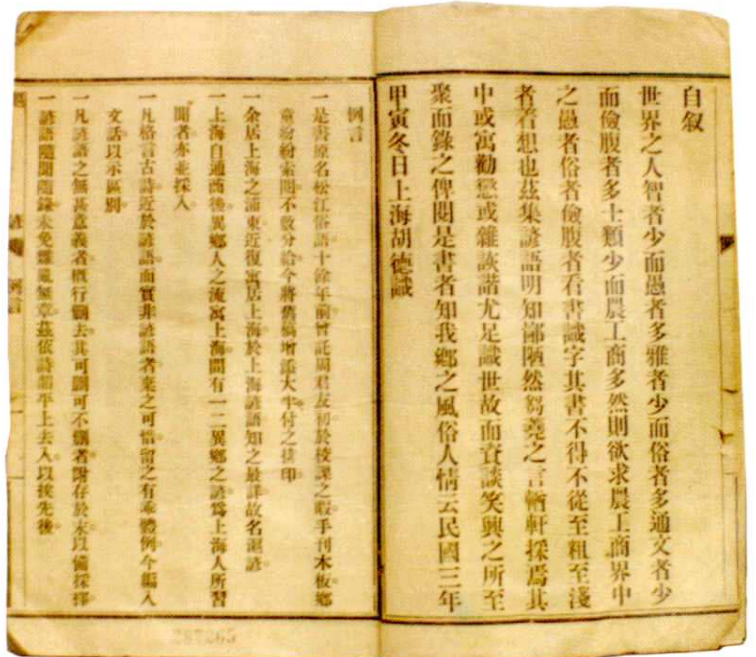 自叙
世界之人智者少而愚者多雅者少而俗者多通文者少
而儉腹者多士類少而農工商多然則欲求農工商界中
之愚者俗者儉腹者看書識字其書不得不從至粗至淺
者着想也茲集諺語明知鄙陋然芻蕘之言輶軒採焉其
中或寓勸懲或雜詼諧尤足識世故而資談笑興之所至
聚而錄之俾閱是書者知我鄉之風俗人情云民國三年
甲寅冬日上海胡德識
例言
一是書原名松江俗語十餘年前曾託周君友初於校課之暇手刊木板鄉
童紛紛索閱不敷分給今將舊稿增添大半付之排印
一余居上海之浦東近復寓居上海於上海諺語知之最詳故名滬諺
一上海自通商後異鄉人之流寓上海間有一二異鄉之諺爲上海人所習
聞者亦並採入
一凡格言古詩近於諺語而實非諺語者棄之可惜留之有乖體例今編入
文話以示區別
一凡諺語之無甚意義者槪行刪去其可刪可不刪者附存於末以備採擇
一諺語隨聞隨錄未免雜亂無章茲依詩韻平上去入以挨先後
例言
一
287265